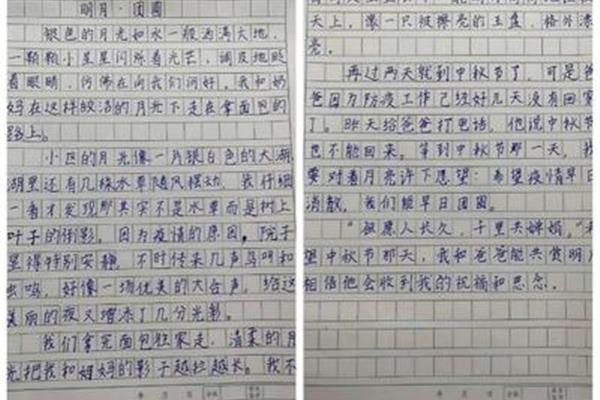 明月·团圆
银色的月光如水一般洒满大地,
一颗颗小星星闪烁着光芒,调皮地眨
着眼睛,仿佛在向我们问好。我和妈
妈在这样皎洁的月光下走在拿面包的
路上。
小区的月光像一片银白色的大湖,
湖里还有几株水草随风摆动,我仔细
一看才发现那其实不是水草而是树上
叶子的倒影。因为疫情的原因,院子
显得特别安静,不时传来几声鸟叫和
虫鸣,好像一场优美的大合声,给这
美丽的夜又增添了几分光彩。
我们拿完面包往家走,清柔的月
光把我和妈妈的影子越拉越长。我不
天上,像一只被擦亮的玉盘,格外漂
亮。
再过两天就到中秋节了,可是爸
爸因为防疫工作已经好几天没有回家
了。昨天给爸爸打电话,他说中秋节
也不能回来。等到中秋节那一天,我
要对着月亮许下愿望:希望疫情早日
消散,我们能早日团圆。
“但愿人长久,千里共婵娟。”希
望中秋节那天,我和爸爸能共赏明月
相信他会收到我的祝福和思念。
年 月 日
年 月 日